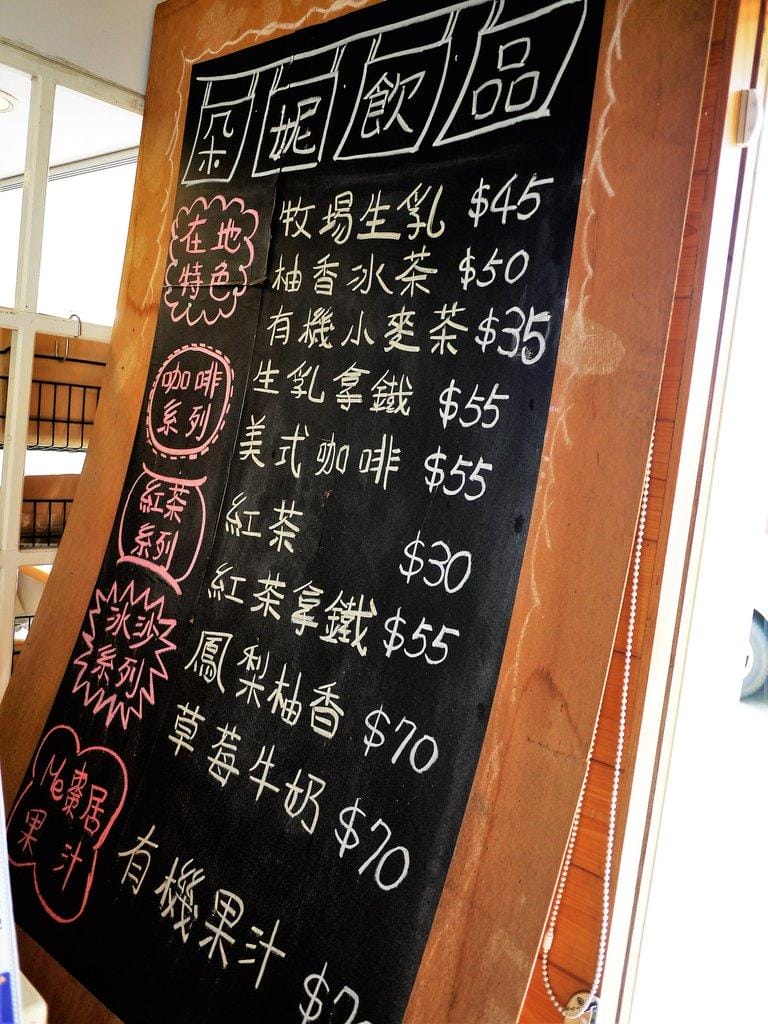 朵妮飲品
在地特色
牧場生乳 $45
柚香冰茶 $50
有機小麥茶 $35
咖啡系列
生乳拿鐵 $55
美式咖啡 $55
紅茶系列
紅茶 $30
紅茶拿鐵 $55
冰沙系列
鳳梨柚香 $70
草莓牛奶 $70
Me棗居果汁
有機果汁